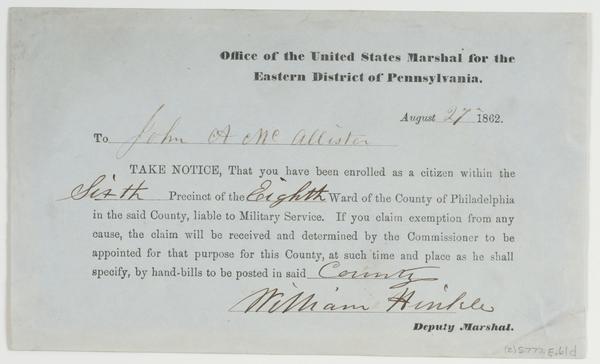 Office of the United States Marshal for the
Eastern District of Pennsylvania.
August 27th 1862.
To John A McAllister
TAKE NOTICE, That you have been enrolled as a citizen within the
Sixth Precinct of the Eighth Ward of the County of Philadelphia
in the said County, liable to Military Service. If you claim exemption from any
cause, the claim will be received and determined by the Commissioner to be
appointed for that purpose for this County, at such time and place as he shall
specify, by hand-bills to be posted in said County
William Hinkle
Deputy Marshal.
(2)5777.F.61d